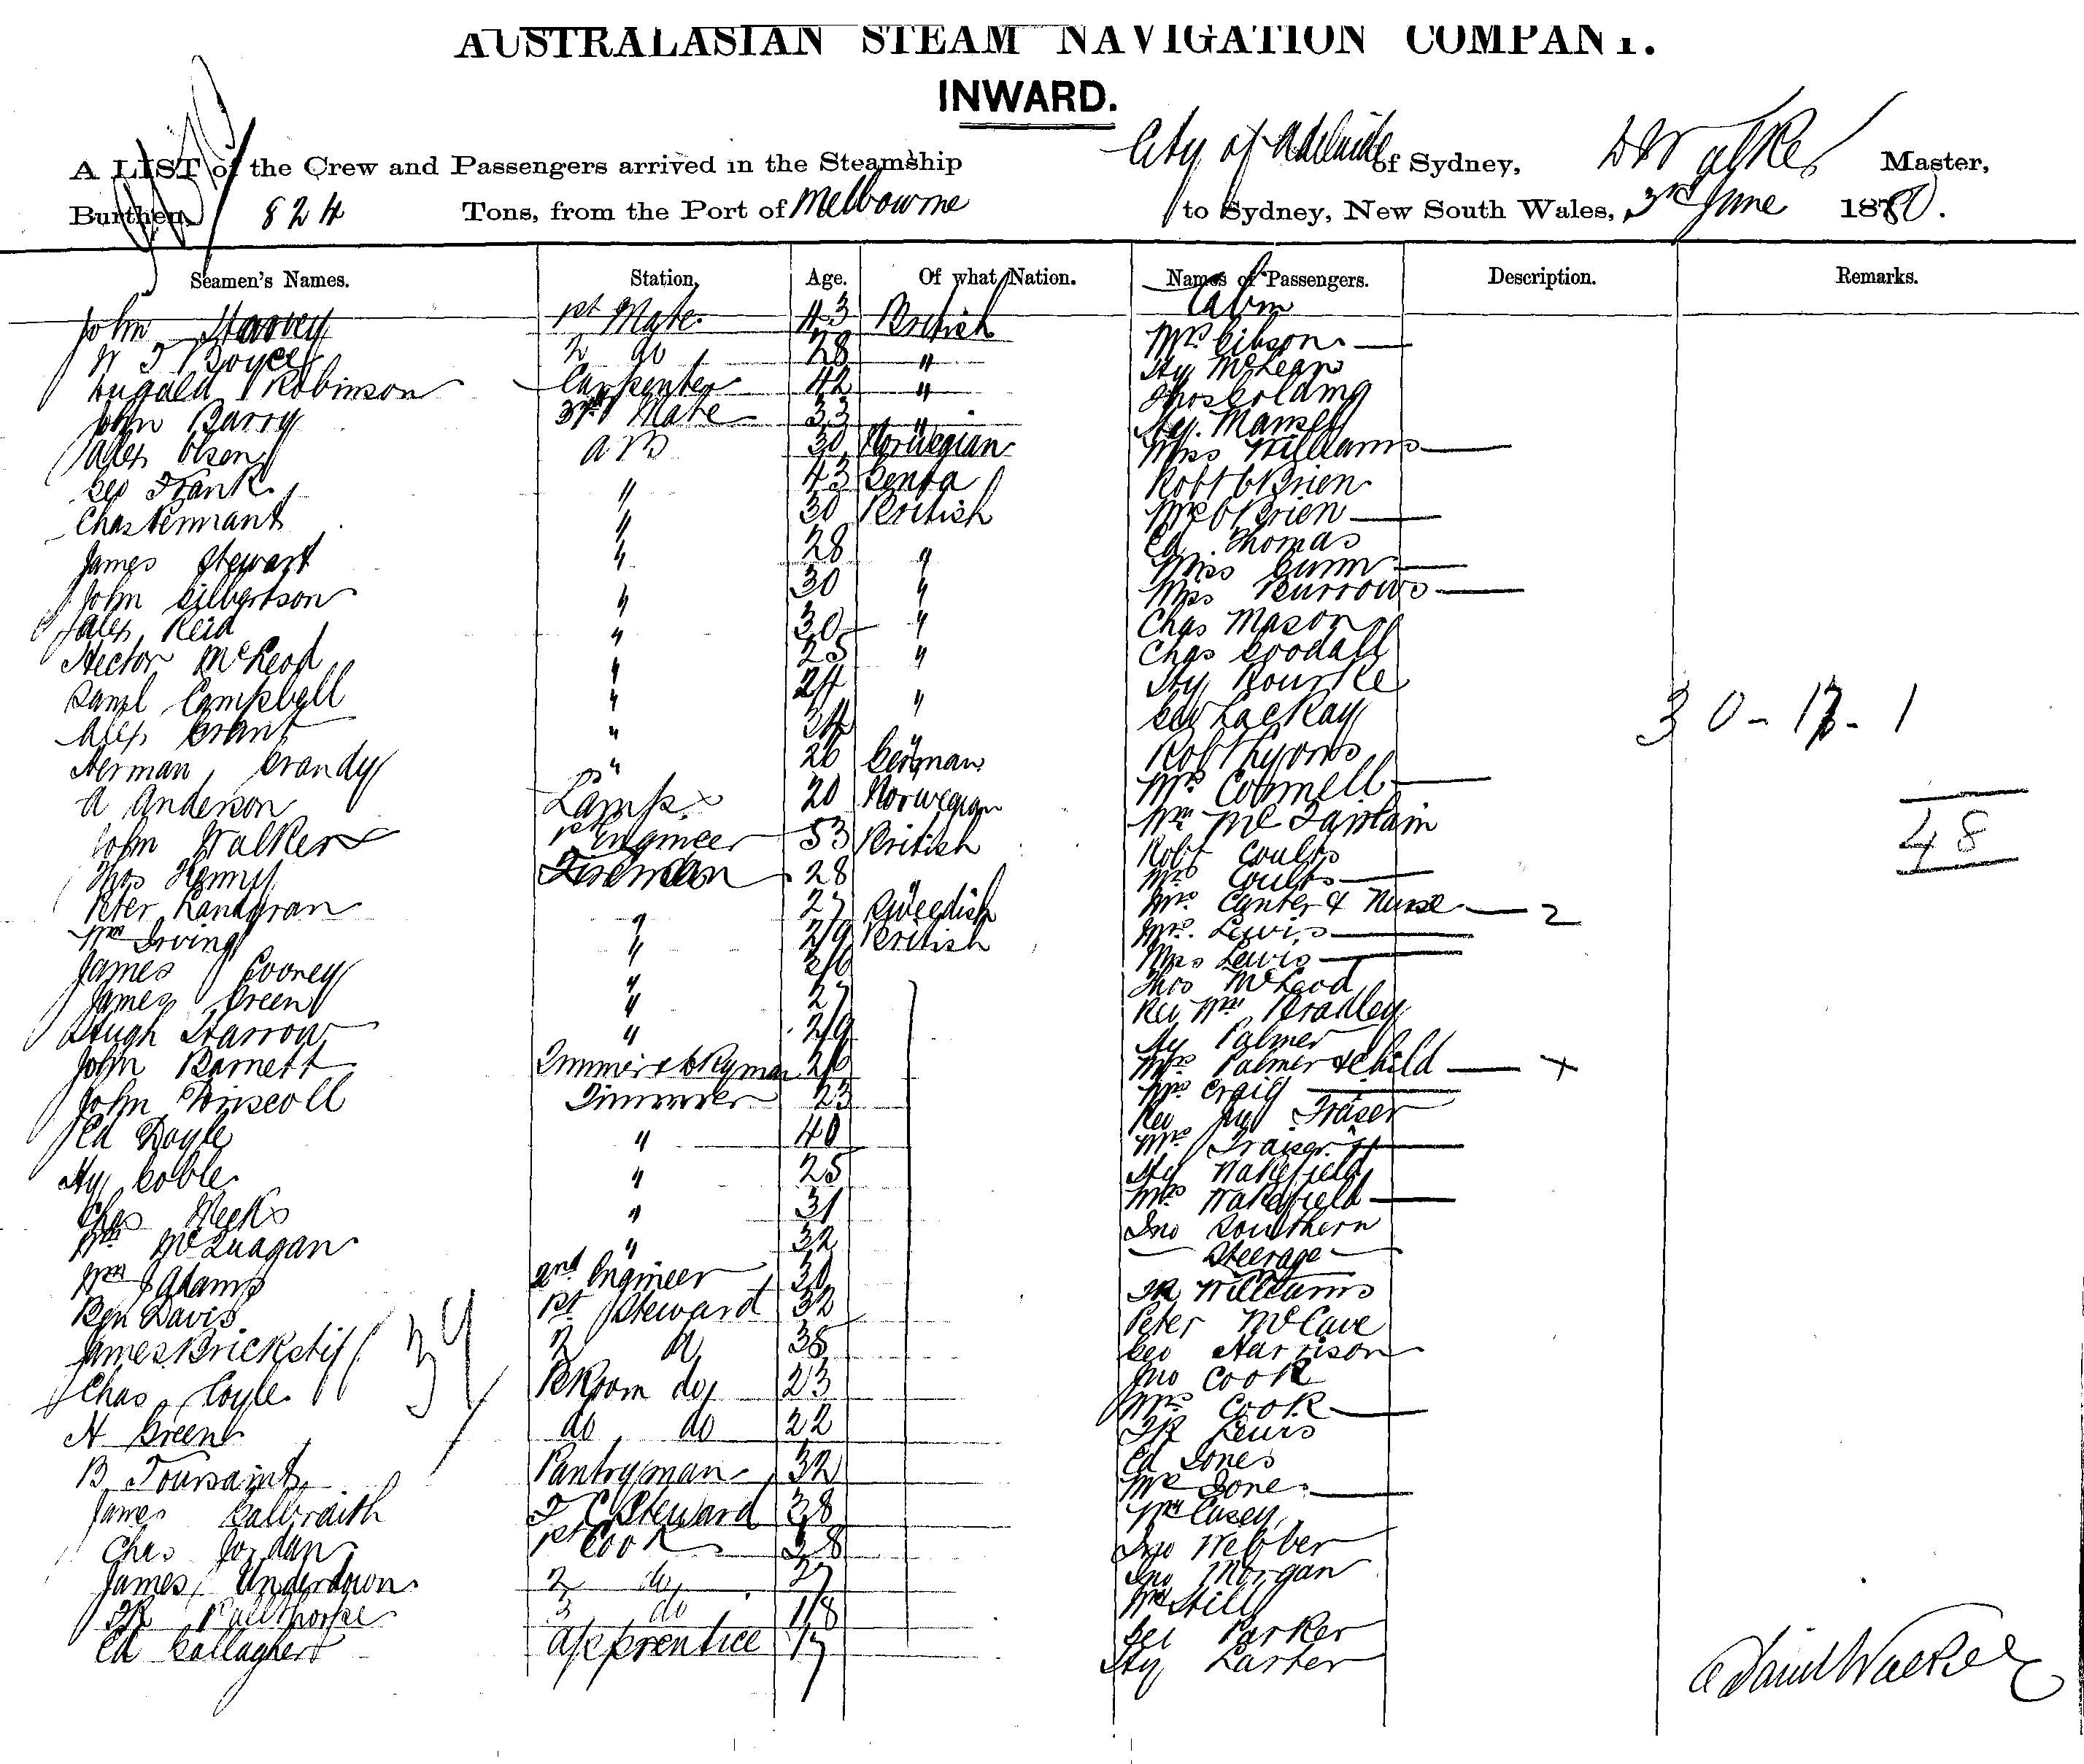 AUSTRALASIAN STEAM NAVIGATION COMPANY.
INWARD.
A LIST of the Crew and Passengers arrived in the Steamship City of Adelaide of Sydney, D Walker Master,
Burthen 824 Tons, from the Port of Melbourne to Sydney, New South Wales, 3rd June 1880.
Seamen's Names. Station, Age. Of what Nation. Names of Passengers. Description. Remarks.
Cabin
John Harvey 1st Mate 43 British Mrs Gibson
W T Boyce 2 do 28 " Hy McLean
Dugald Robinson Carpenter 42 " Thos
John Barry 3rd Mate 33 " Hy. Mansell
Alex Olsen A B 30 Norwegian Miss Williams
Geo Frank " 43 Robt O'Brien
Chas Tennant " 30 British Mrs O'Brien
James Stewart " 28 " Ed. Thomas
Miss Gunn
John Gilbertson " 30 " Miss Burrows
Alex Reid " 30 " Chas Mason
Hector McLeod " 25 " Chas Goodall
Saml Campbell " 24 " Hy Rourke
Alex Grant " 34 " Geo Lackay
Herman Grandy " 26 German Robt Lyons
A Anderson Lamps 20 Norwegian Mrs Connell
John Walker 1st Engineer 53 British Wm
Thos Fireman 28 " Robt Coults
Mrs Coults
Peter Landgran " 27 Sweedish Mrs Canter & Nurse 2
Wm Irving " 29 British Mrs. Lewis
James Cooney " 26 Miss Lewis
James Green " 27 Thos McLeod
Hugh Harrow " 29 Rev Wm Bradley
Hy Palmer
John Barnett Trimmer & 26 Mrs Palmer & Child +
John Driscoll Trimmer 23 Craig
Ed Doyle " 40 Rev Fraser
Mrs Fraser
Hy Coble " 25 Hy Wakefield
Chas Meeks " 31 Mrs Wakefield
Wm McQuagan " 32 Jno Southern
Steerage
Wm J Adams 2nd Engineer 30 Williams
Ben Davis 1st Steward 32 Peter McCave
James 2 d 38 Geo Harrison
Chas Coyle BKroom do 23 Jno Cook
Mrs Cook
H Green do do 22 Lewis
B Toursaint Pantryman 32 Ed Jones
Mrs Jones
James Galbraith F C Steward 38 Casey
Chas Jordan 1st Cook 28 Jno Webber
James Underdown 2 do 27 Jno Morgan
3 do 18 Wm Hill
Ed Gallagher Apprentice 17 Geo Parker
Hy Larter
30 - 17 - 1
48
39
Daniel Walker